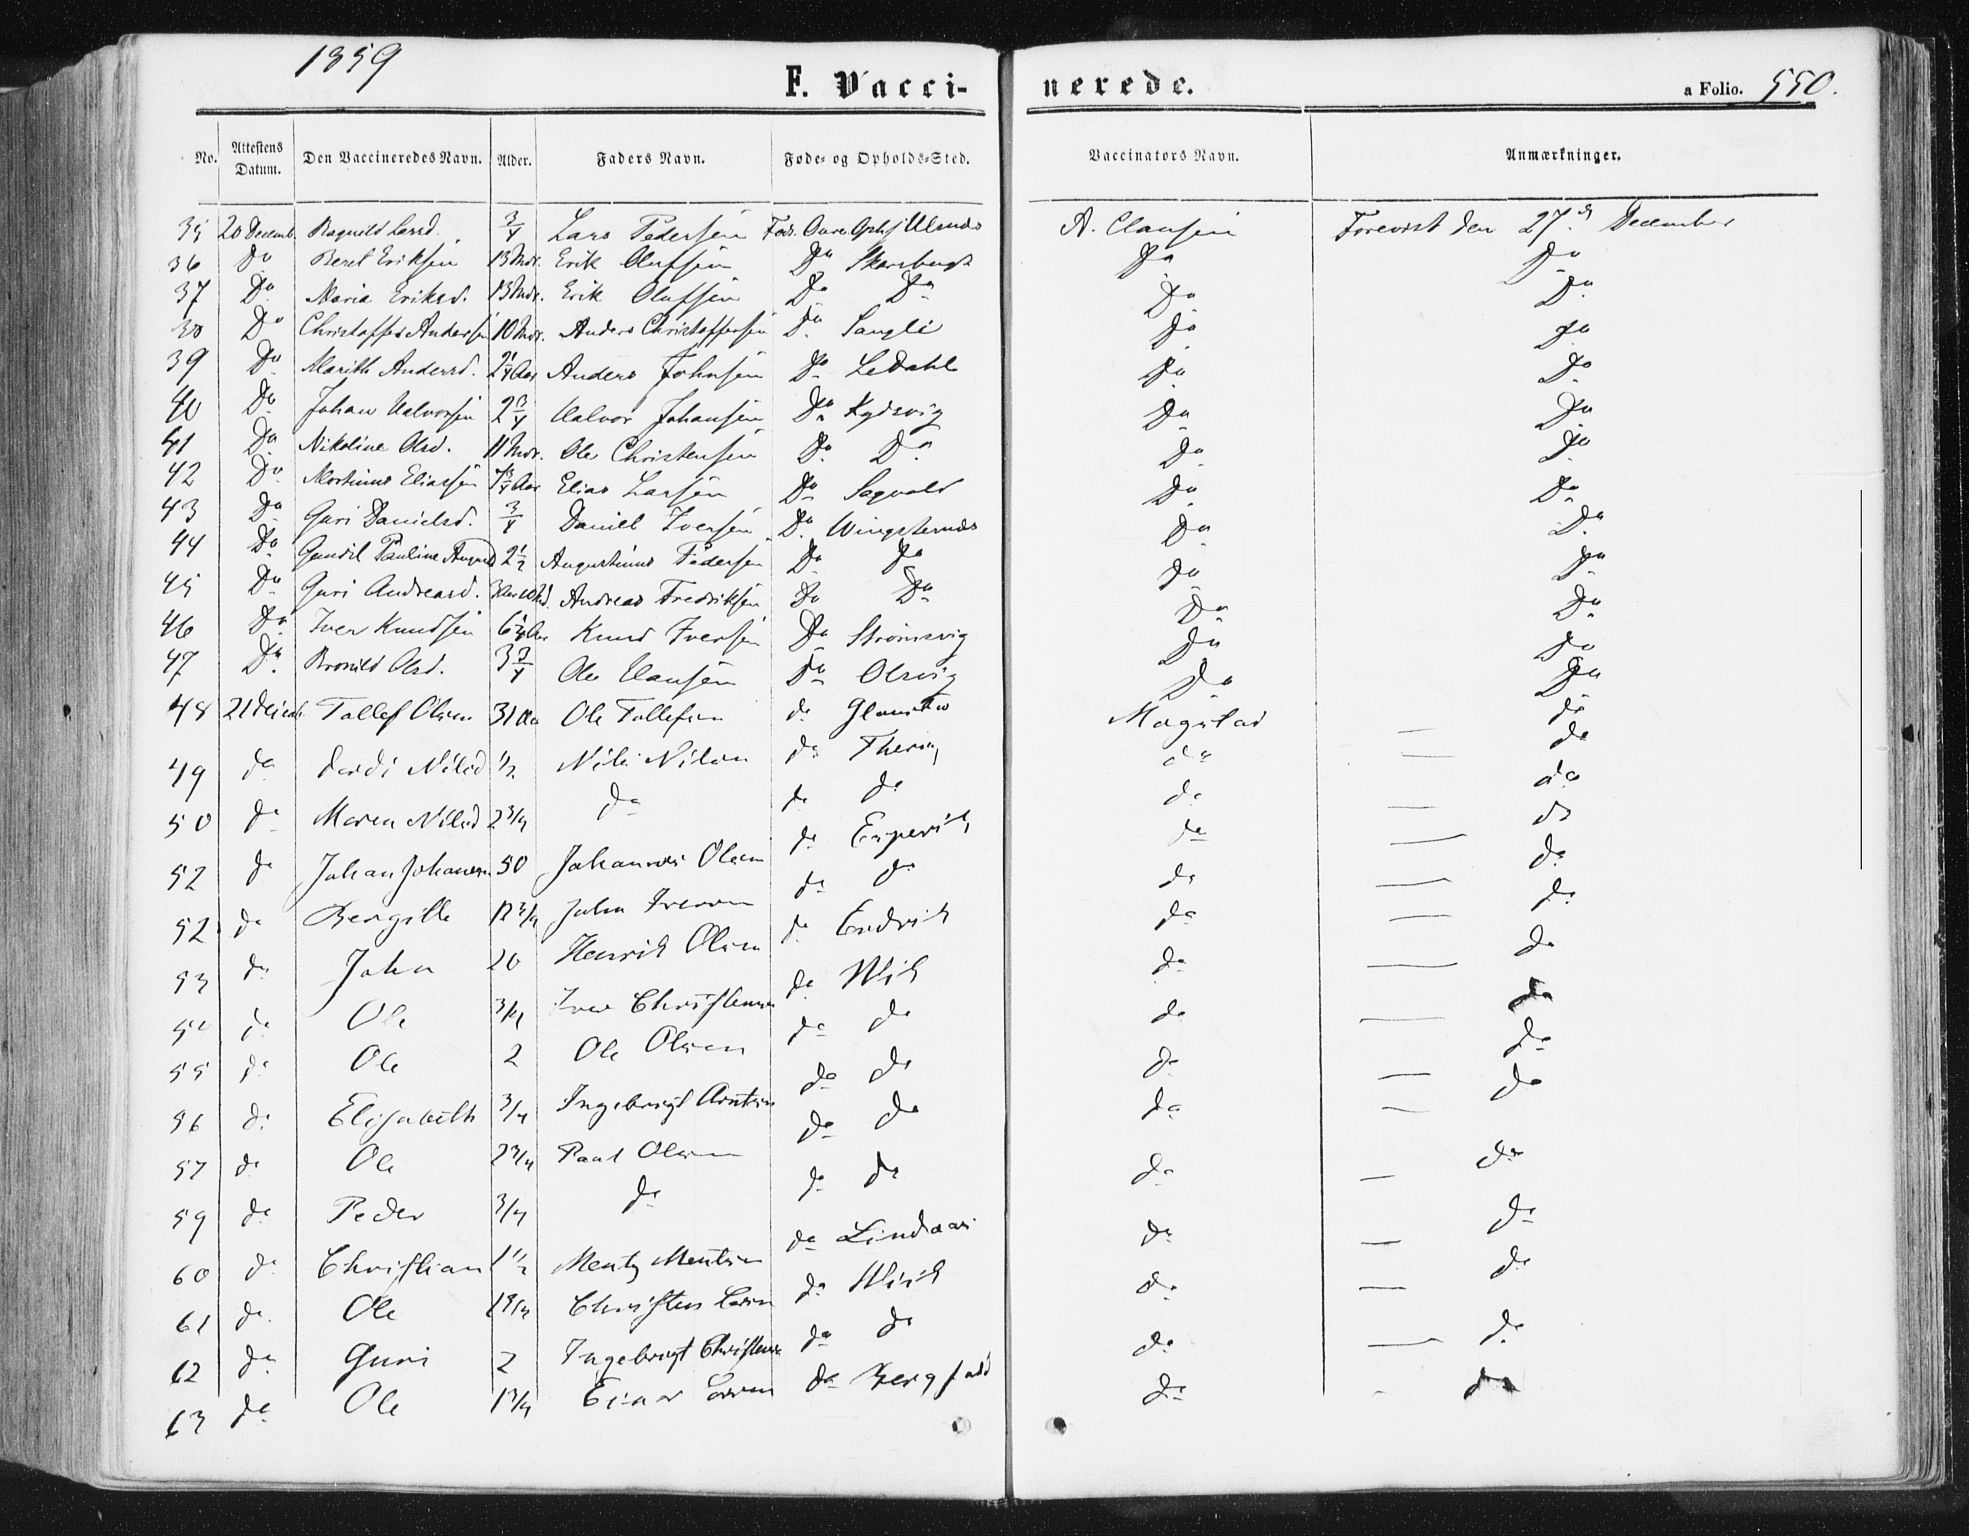 1859
F. Vaccinerede.
a Folio. 550.
No. Attestens Datum. Den Vaccineredes Navn. Alder. Faders Navn. Føde- og Opholds-Sted. Vaccinators Navn. Anmærkninger.
35 20 Decemb. Ragnild Larsd. 3/4 Lars Pedersen Fød. A. Clausen Forevist den 27d December
36 Do Beret Eriksen 13 Mdr. Erik Olufsen Do Do Do
37 Do Maria Eriksd. 13 Mdr. Erik Olufsen Do Do Do Do
38 Do Christoffer Andersen 10 Mdr. Anders Christoffersen Do Sangli Do Do
39 Do Marith Andersd. 2 1/4 Aar Anders Johnsen Do Ledahl Do Do
40 Do Johan Halvorsen 2 3/4 Halvor Johansen Do Kydsvig Do Do
41 Do Nikoline Olsd. 11 Mdr. Ole Christensen Do Do Do Do
42 Do Martinus Eliassen Elias Larsen Do Sagvold Do Do
43 Do Guri Danielsd. 3/4 Daniel Iversen Do Wingsternes Do Do
44 Do Gunild Pauline 2 1/2 Augustinus Pedersen Do Do Do Do
45 Do Guri Andreasd. Andreas Fredriksen Do Do Do Do
46 Do Iver Knudsen Knud Iversen Do Strömsvig Do Do
47 Do Olsd. 3 3/4 Ole Clausen Do Olsvig Do Do
48 Tollef Olsen 31 Aar Ole Tollefsen do Magstad — do
49 do Nilsd 1/2 Nils Nilsen do do — do
50 do Maren Nilsd 2 3/4 do do do do — do
52 do Johan Johannesen 50 Johannes Olsen do Espevik do — do
52 do Bergitte 12 3/4 John Iversen do do do — do
53 do John 20 Henrik Olsen do Endvik do — do
54 do Ole 3/4 Iver Christensen do do — do
55 do Ole 2 Ole Olsen do do do — do
56 do Elisabeth 3/4 Ingebrigt Arntsen do do do — do
57 do Ole 2 3/4 Paul Olsen do do do — do
59 do Peder 3/4 do do do do — do
60 do Christian 1 1/2 Mentz Mentsen do Lindaas do — do
61 do Ole Christen Larsen do do — do
62 do Guri 2 Ingebrigt Christensen do do do — do
63 do Ole 1 3/4 Einar Larsen do do - do